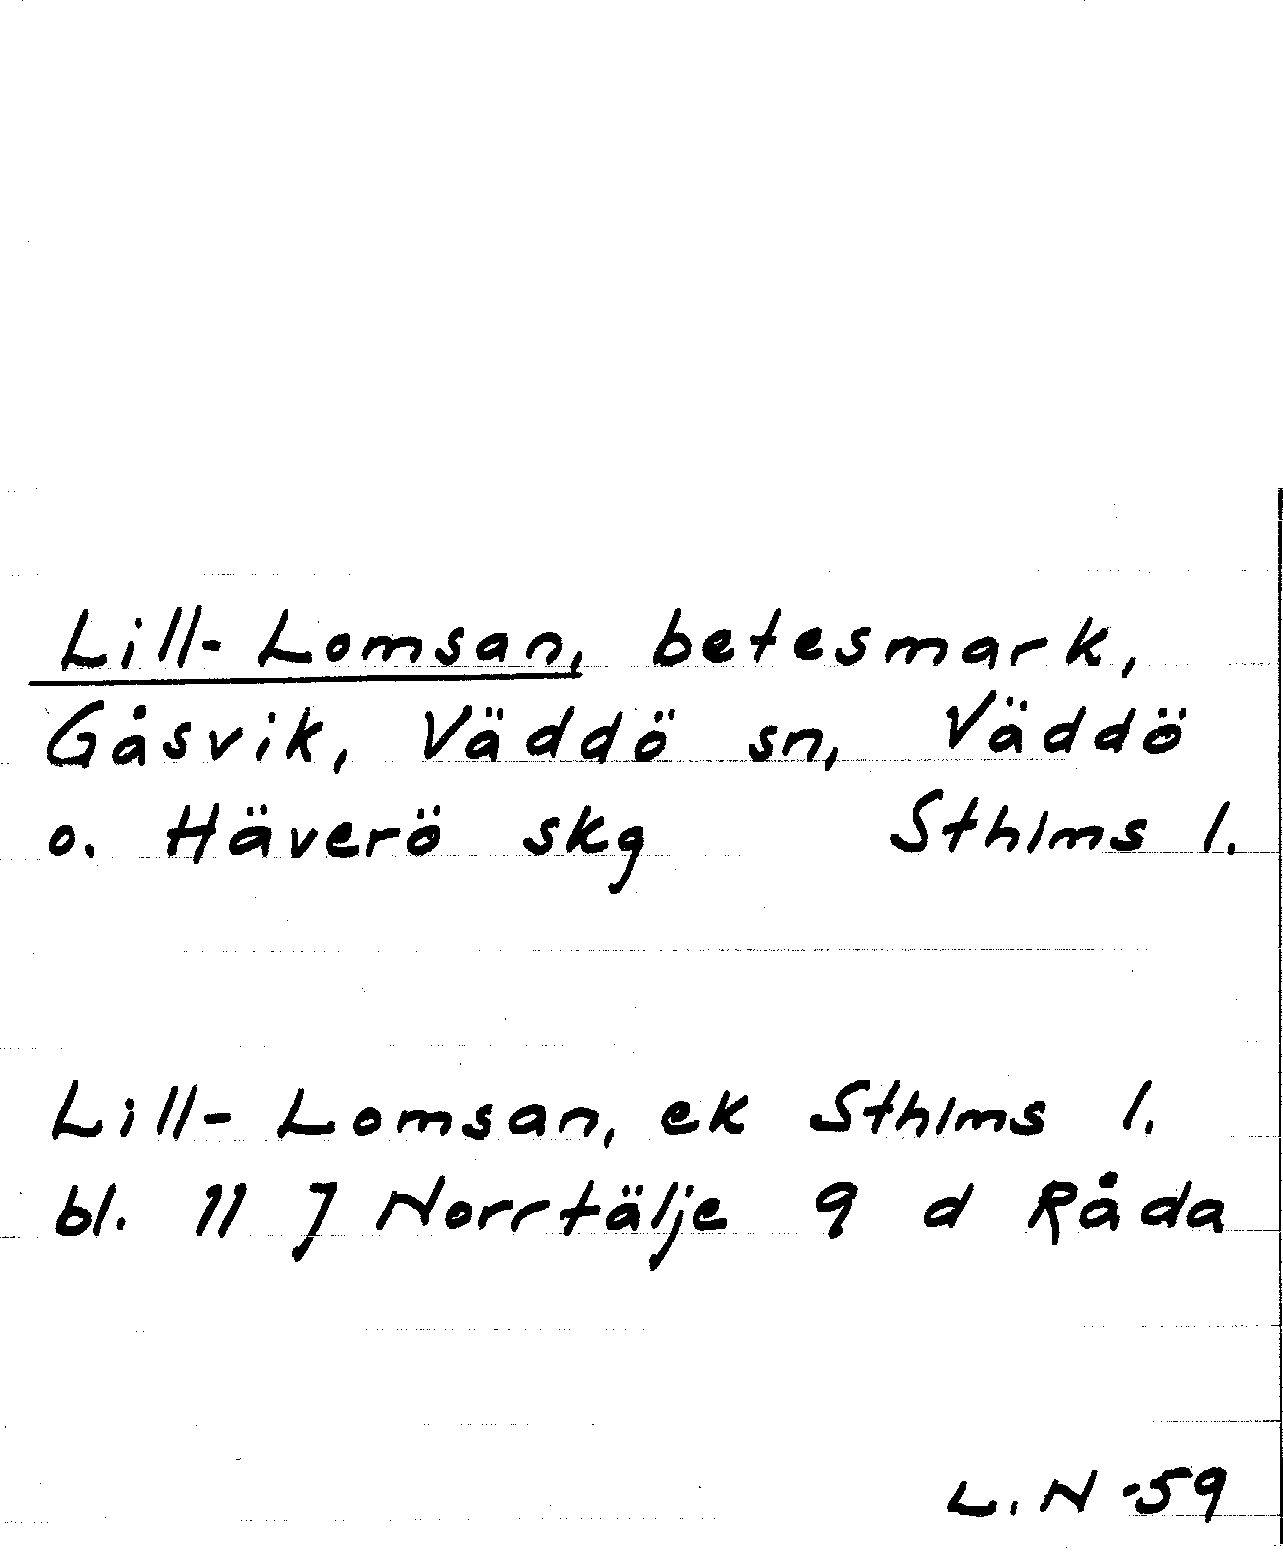 Lill-Lomsan, betesmark,
Gåsvik, Väddö sn, Väddö
o. Häverö skg Sthlms l.
Lill-Lomsan, ek Sthlms l.
bl. 11 J Norrtälje 9 d Råda
L.N -59